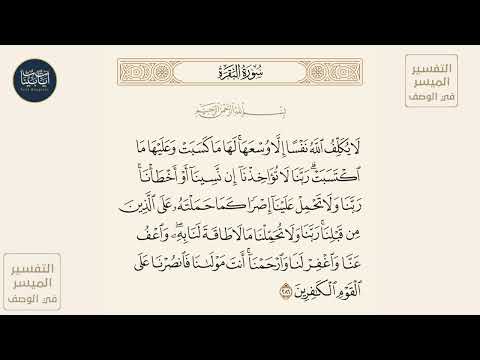 آيات بينات
سُورَةُ البَقَرَةِ
التفسير
الميسر
في الوصف
بِسْمِ اللَّهِ الرَّحْمَٰنِ الرَّحِيمِ
لَا يُكَلِّفُ اللَّهُ نَفْسًا إِلَّا وُسْعَهَا ۚ لَهَا مَا كَسَبَتْ وَعَلَيْهَا مَا
ٱكْتَسَبَتْ ۗ رَبَّنَا لَا تُؤَاخِذْنَآ إِن نَّسِينَآ أَوْ أَخْطَأْنَا ۚ
رَبَّنَا وَلَا تَحْمِلْ عَلَيْنَآ إِصْرًا كَمَا حَمَلْتَهُۥ عَلَى ٱلَّذِينَ
مِن قَبْلِنَا ۚ رَبَّنَا وَلَا تُحَمِّلْنَا مَا لَا طَاقَةَ لَنَا بِهِۦ ۖ وَٱعْفُ
عَنَّا وَٱغْفِرْ لَنَا وَٱرْحَمْنَآ ۚ أَنتَ مَوْلَىٰنَا فَٱنصُرْنَا عَلَى
ٱلْقَوْمِ ٱلْكَٰفِرِينَ ٢٨٦
التفسير
الميسر
في الوصف